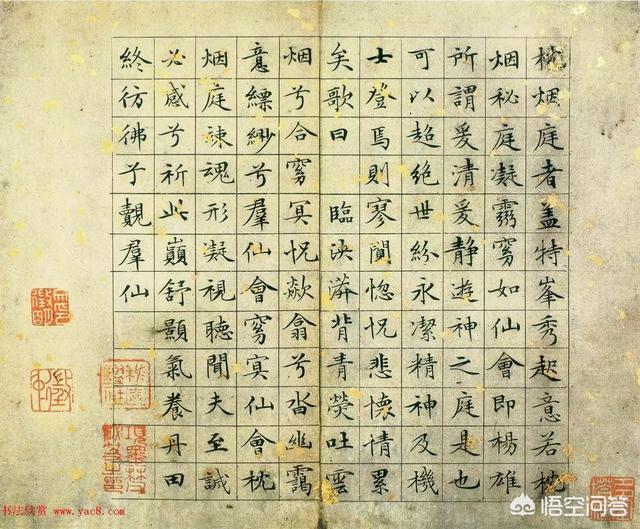 枕烟庭者盖特峯秀起意若枕
烟秘庭凝靈窅如仙會即楊雄
所謂爰清爰静遊神之庭是也
可以超絶世紛永潔精神及機
士登焉則寥闃惚怳悲懷情累
矣歌曰 臨泱漭背青熒吐雲
烟兮合窅冥怳欻翕兮沓幽靄
意縹緲兮羣仙會窅冥仙會枕
烟庭竦魂形凝視聽聞夫至誠
必感兮祈此巔舒顥氣養丹田
終彷彿子覿羣仙
书法欣赏 www.yac8.com
悟空问答